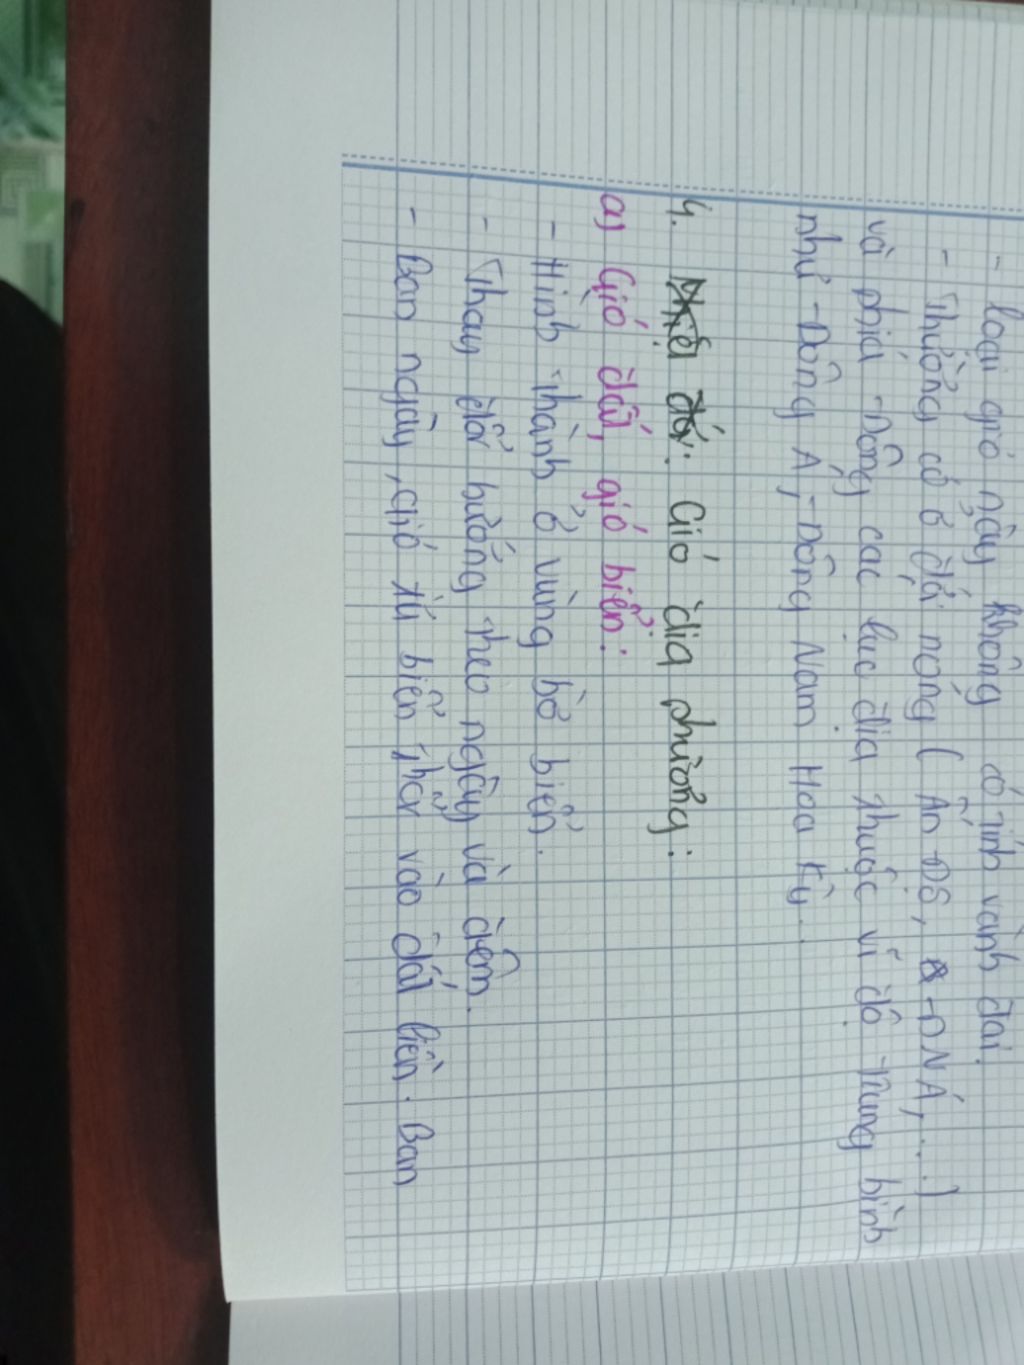 - loại gió này không có tính vành đai.
- Thường có ở đới nóng ( Ấn Độ, ĐNÁ,...)
và phía Đông các lục địa thuộc vĩ độ trung bình
như Đông Á, Đông Nam Hoa Kỳ.
4. Gió địa phương:
a) Gió đất, gió biển:
- Hình thành ở vùng bờ biển.
- Thay đổi hướng theo ngày và đêm.
- Ban ngày, gió từ biển thổi vào đất liền. Ban